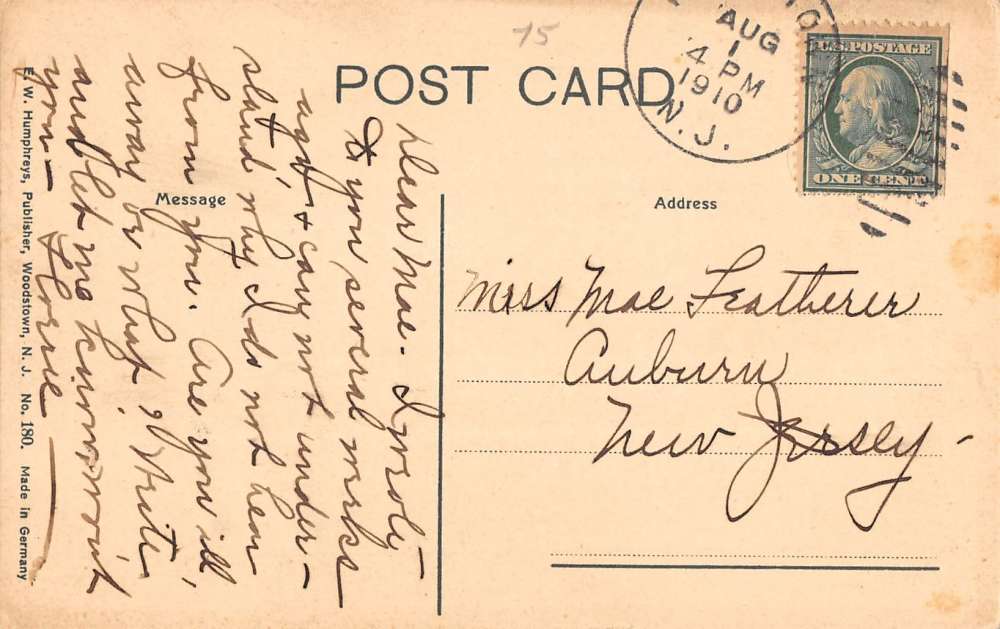 15
POST CARD
AUG
1
4 PM
1910
N. J.
U.S. POSTAGE
ONE CENT
Message
Address
Dear Mae - I wrote
to you several weeks
ago & can not under-
stand why I do not hear
from you. Are you ill,
away or what? Write
and let me know won't
you -
Miss Mae Featherer
Auburn
New Jersey -
E. W. Humphreys, Publisher, Woodstown, N. J. No. 180. Made in Germany